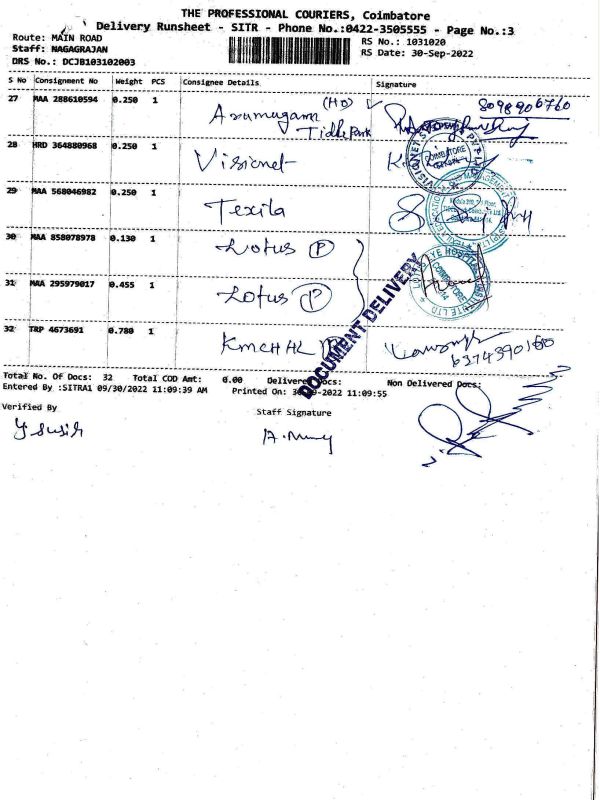 THE PROFESSIONAL COURIERS, Coimbatore
Delivery Runsheet - SITR - Phone No.:0422-3505555 - Page No.:3
Route: MAIN ROAD
RS No.: 1031020
Staff: NAGAGRAJAN
RS Date: 30-Sep-2022
DRS No.: DCJB103102003
S No Consignment No Weight PCS Consignee Details Signature
27 MAA 288610594 0.250 1 Arumugam (HO) 8098906760
Tidle Park
28 HRD 364880968 0.250 1 Visionet
29 MAA 568046982 0.250 1 Texila
30 MAA 858078978 0.130 1 Lotus P
31 MAA 295979017 0.455 1 Lotus P
32 TRP 4673691 0.780 1 KMCH HL
DOCUMENT DELIVERY
Total No. Of Docs: 32 Total COD Amt: 0.00 Delivered Docs: Non Delivered Docs:
Entered By :SITRA1 09/30/2022 11:09:39 AM Printed On: 30-09-2022 11:09:55
Verified By
Staff Signature